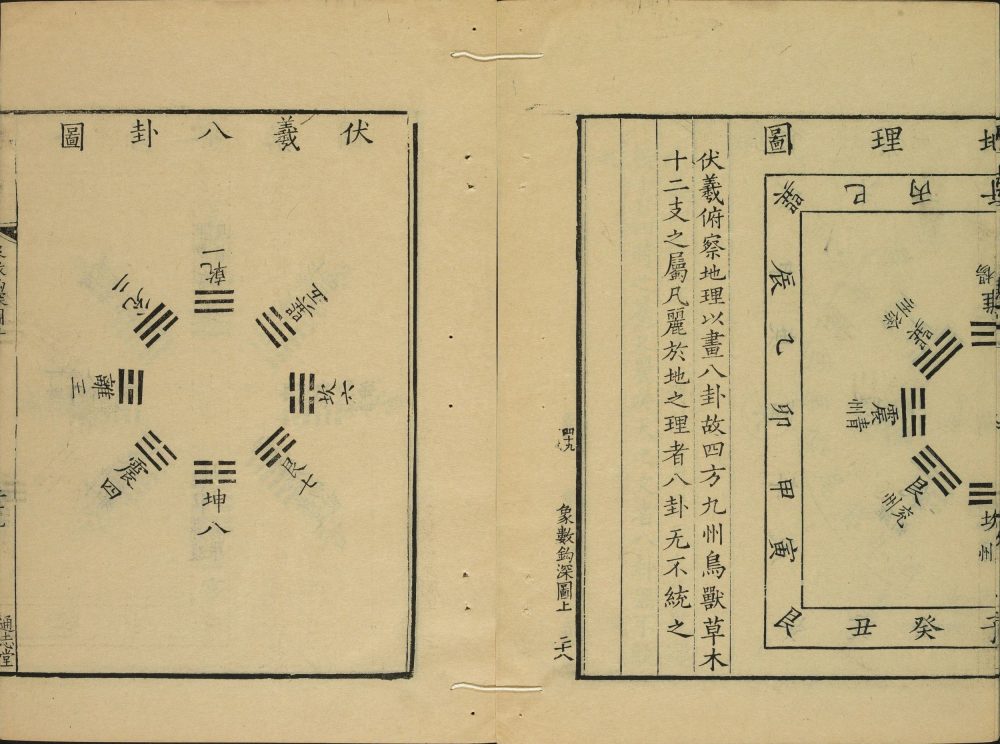 地理圖
丙
巳
巽
辰
乙
卯
甲
寅
艮
丑
癸
巽
震
青州
艮
兖州
坎
州
伏羲俯察地理以畫八卦故四方九州鳥獸草木
十二支之屬凡麗於地之理者八卦无不統之
四十九
象數鈎深圖上
二十八
伏羲八卦圖
乾一
兌二
離三
震四
巽五
坎六
艮七
坤八
通志堂